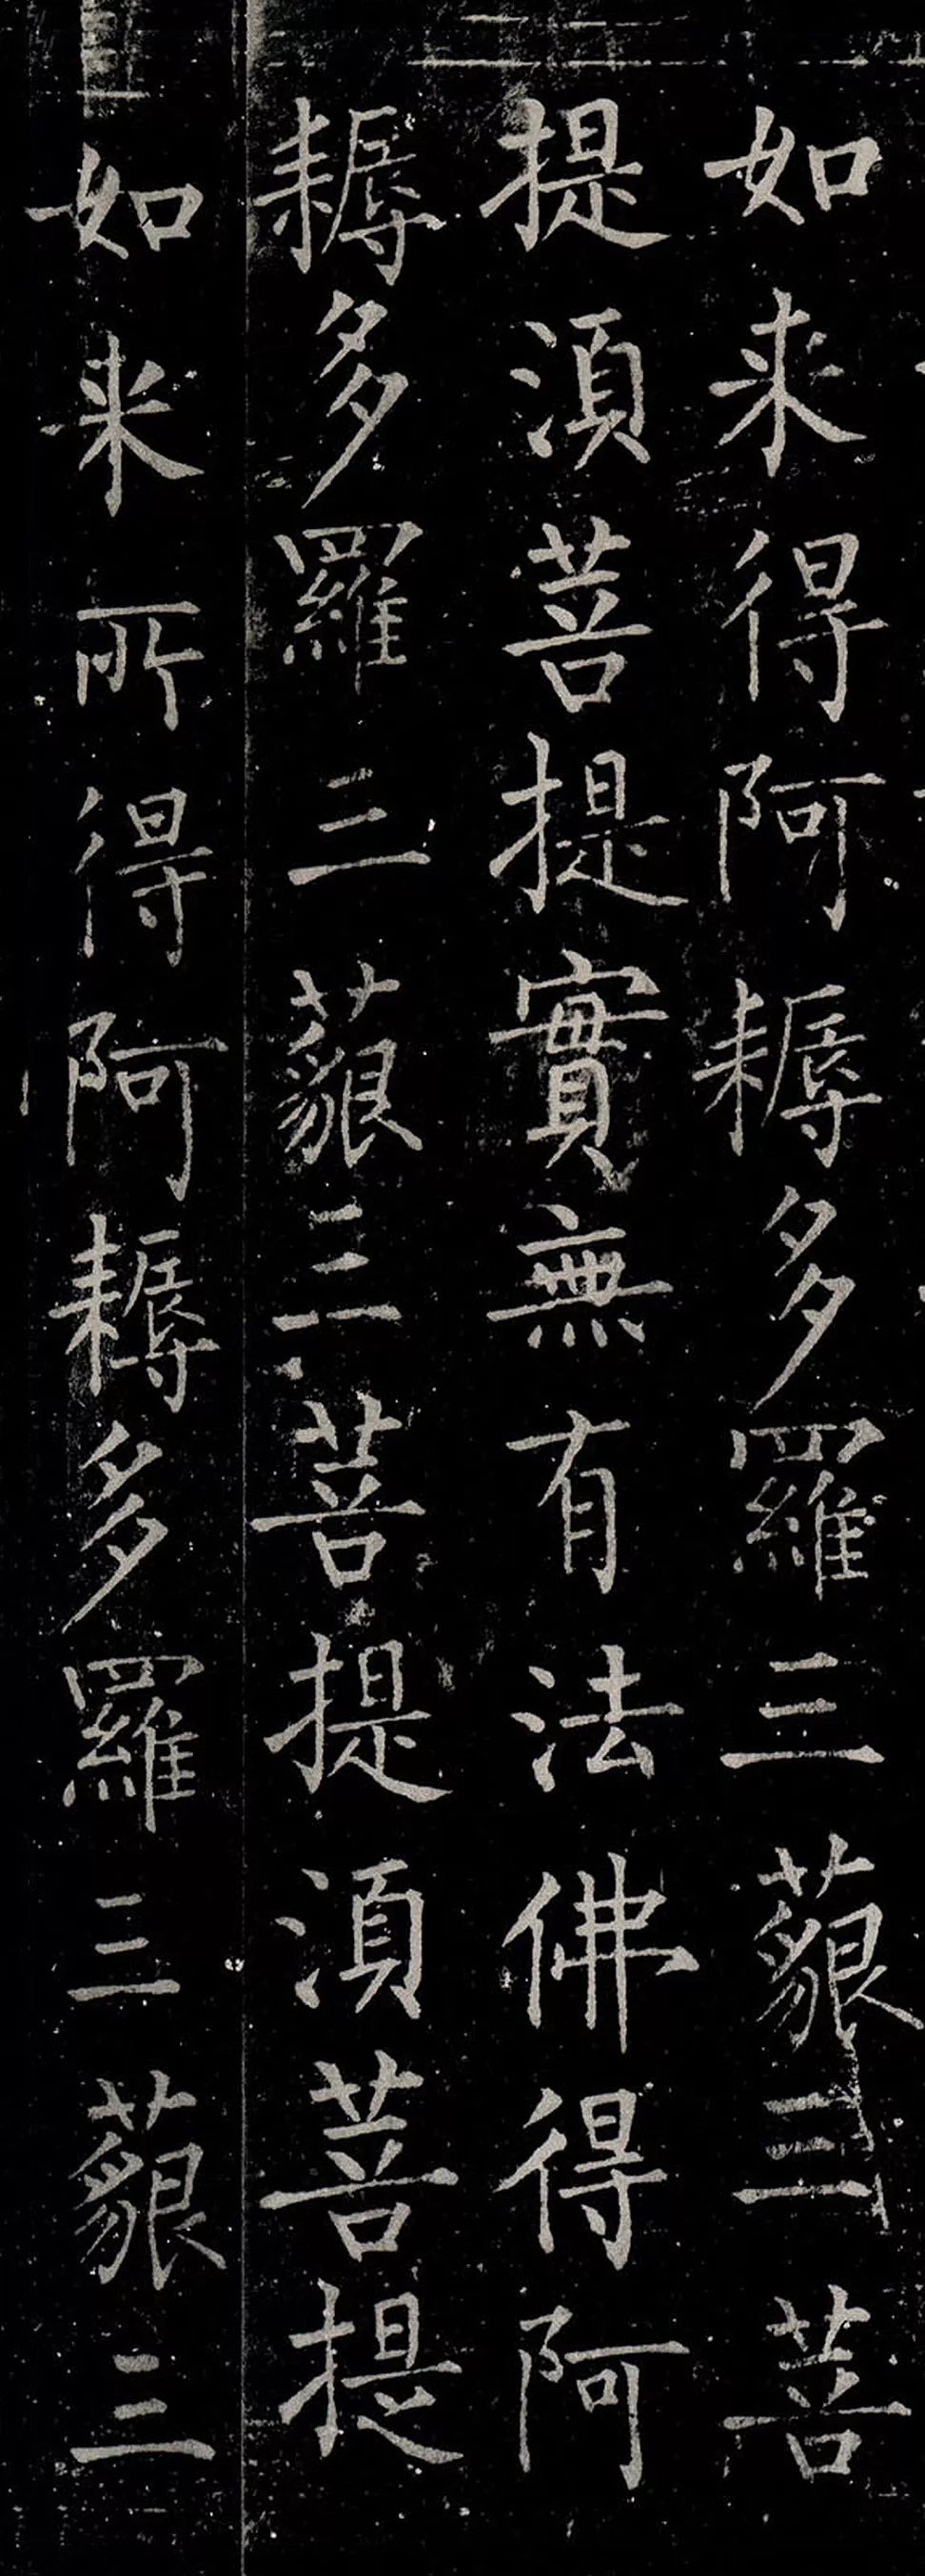 如来得阿耨多羅三藐三菩
提湏菩提實無有法佛得阿
耨多羅三藐三菩提湏菩提
如来所得阿耨多羅三藐三